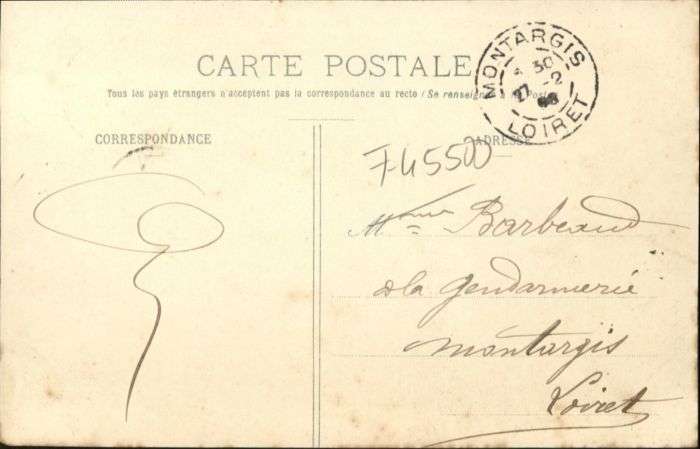 CARTE POSTALE
Tous les pays étrangers n'acceptent pas la correspondance au recto (Se renseigner à la Poste)
MONTARGIS
30
27 -2
LOIRET
CORRESPONDANCE
ADRESSE
745500
Mme Barbeaud
à la gendarmerie
montargis
Loiret